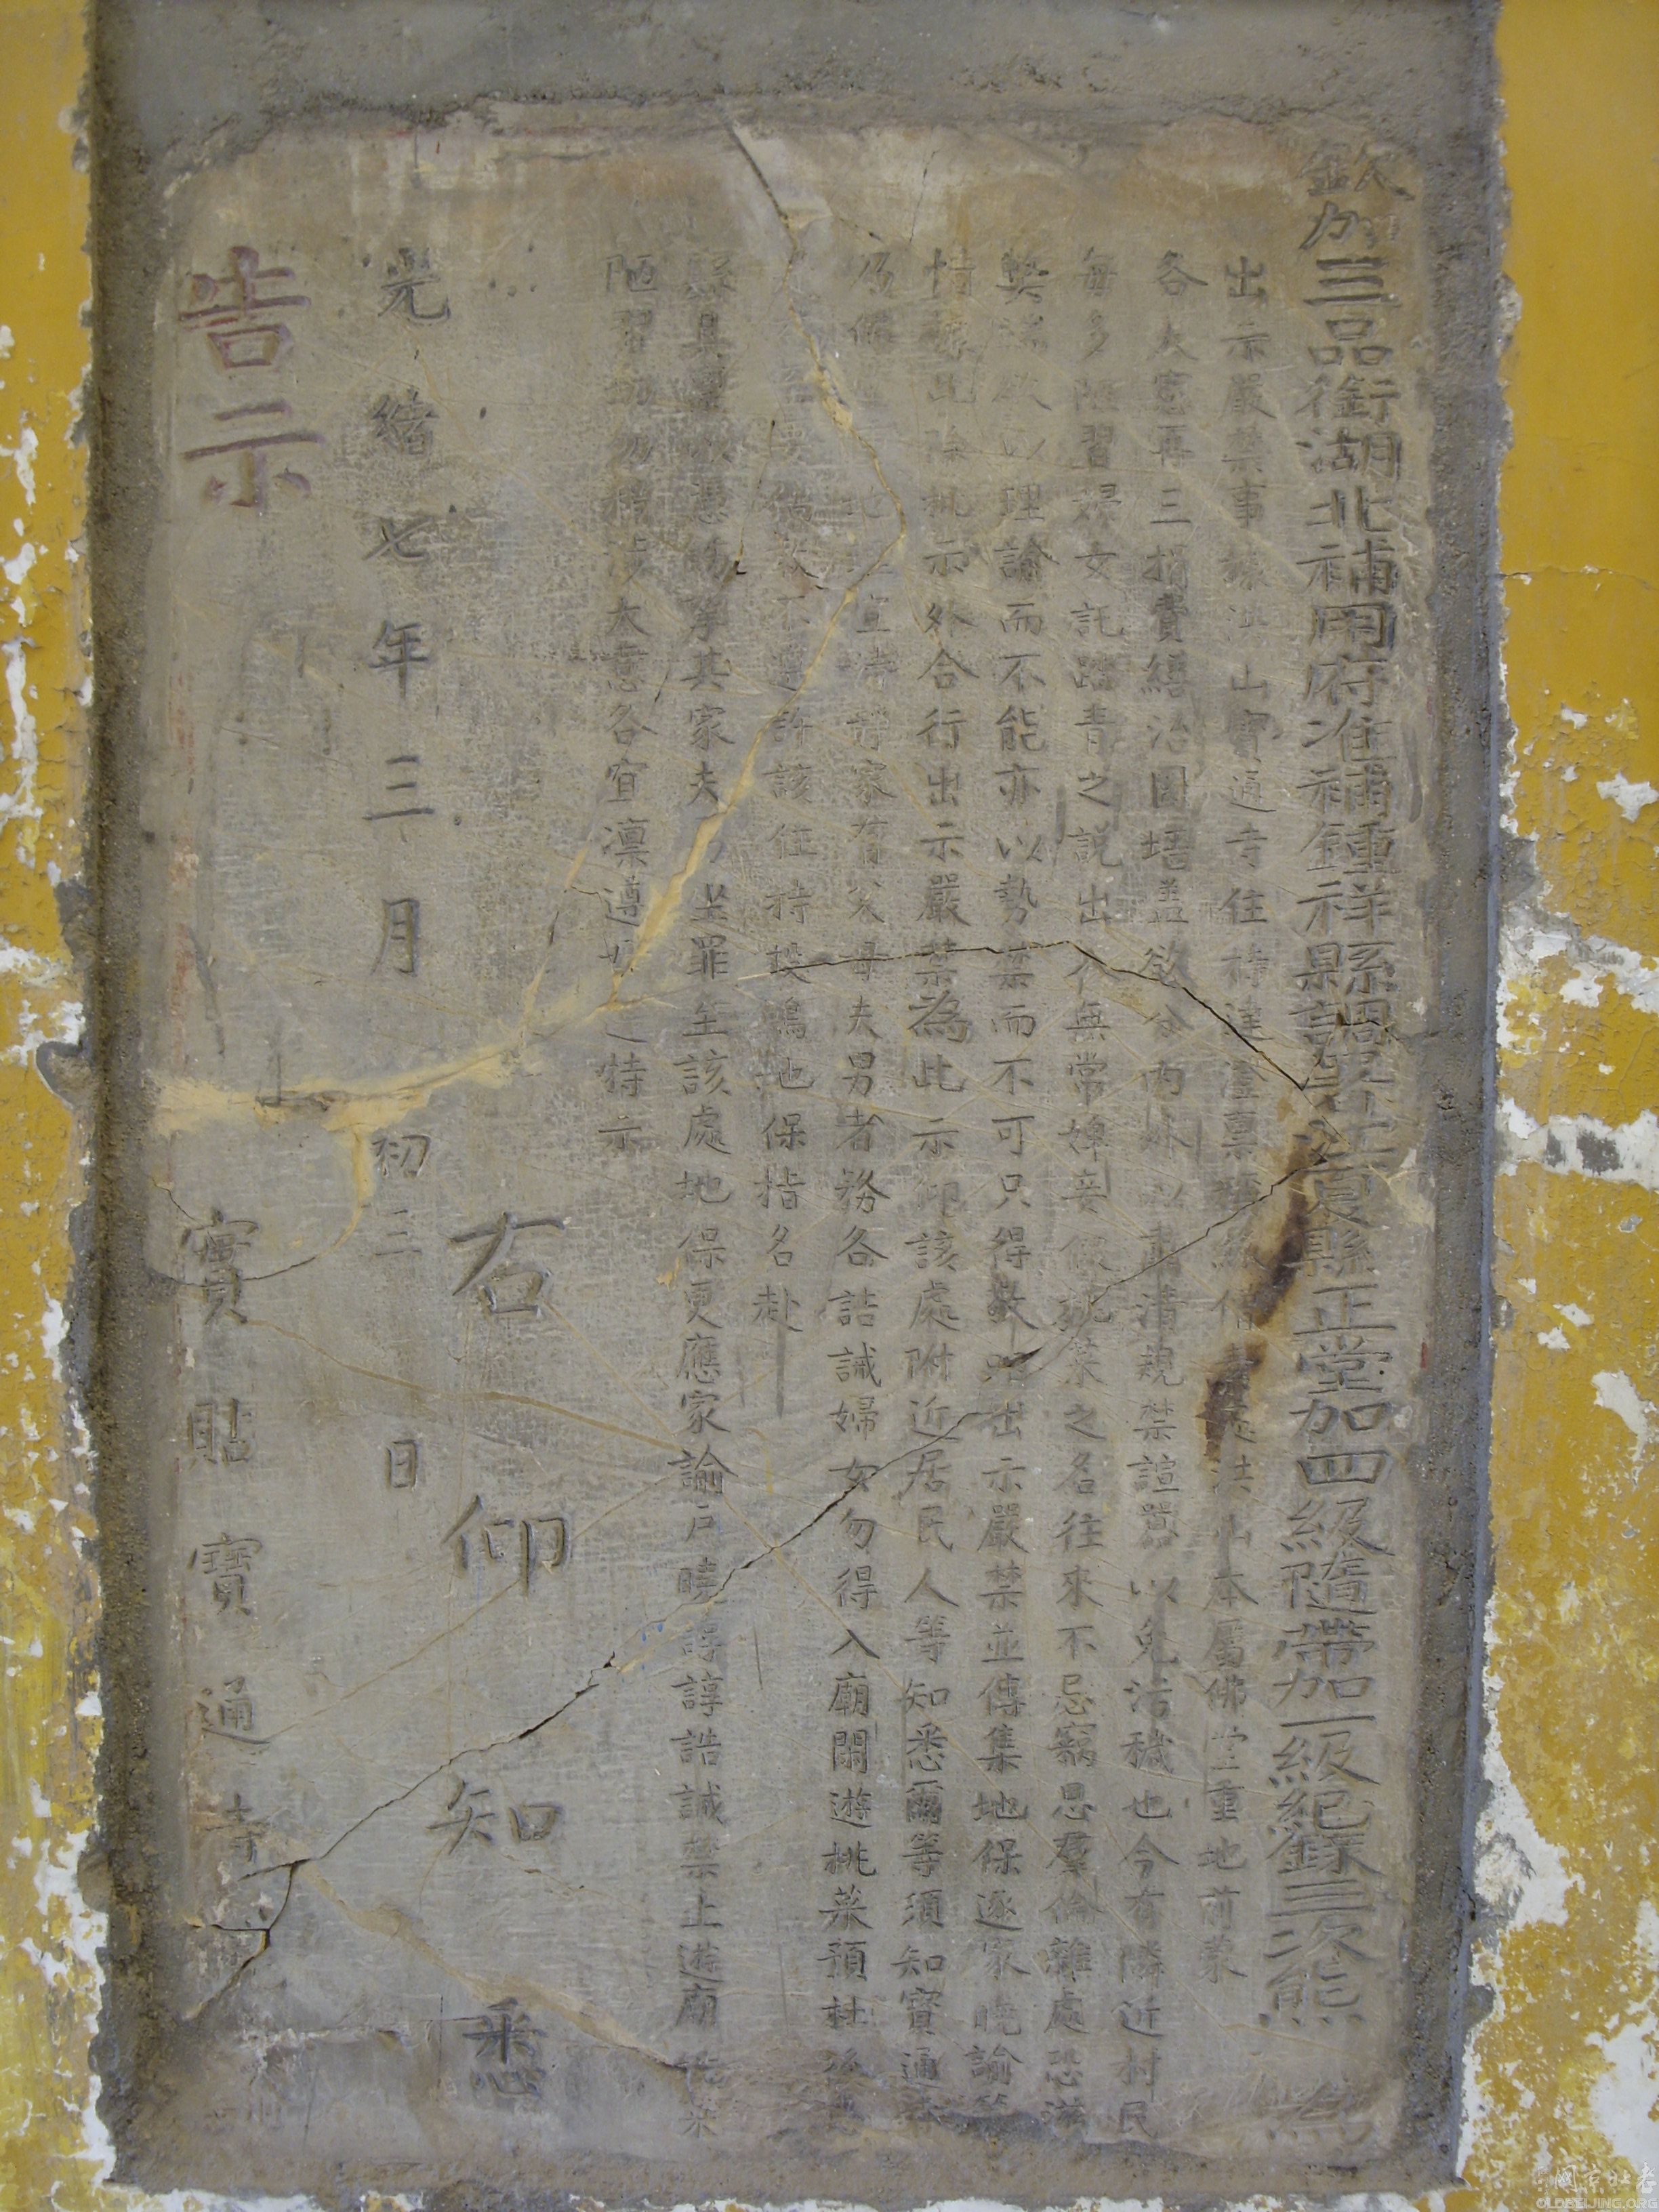 欽加三品銜湖北補用府准補鍾祥縣調署江夏縣正堂加四級隨帶加一級紀錄三次熊 為
出示嚴禁事據洪山寶通寺住持達澄稟 洪山本屬佛堂重地前蒙
各大憲再三捐貲繕治園培蓋欲分內外以肅清規禁諠囂以免沾穢也今有隣近村民
每多陋習婦女託踏青之說出不無常婢妾假挑菜之名往來不忌竊思羣倫雜處恐滋
弊端欲以理諭而不能亦以勢禁而不可只得 出示嚴禁並傳集地保逐家曉諭等
情據此除批示外合行出示嚴禁為此示仰該處附近居民人等知悉爾等須知寶通寺
乃 地 宜 家有父母夫男者務各誥誡婦女勿得入廟閒遊挑菜預杜後
倘敢不遵許該住持投鳴地保指名赴
縣具稟以憑 其家夫 坐罪至該處地保更應家諭戶曉諄諄誥誡禁止遊廟挑菜
陋習切勿稍涉大意各宜凛遵 特示
右仰知悉
光緒七年三月初三日
告示 實貼寶通寺
老北京网
OLDBEIJING.ORG